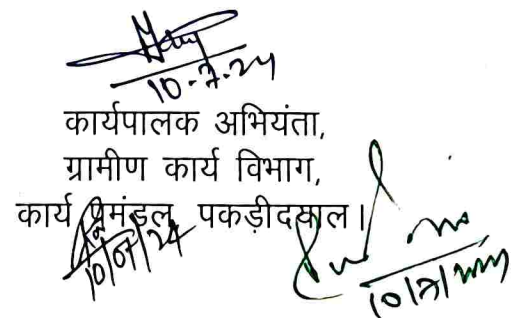 10-7-24
कार्यपालक अभियंता,
ग्रामीण कार्य विभाग,
कार्य प्रमंडल, पकड़ीदयाल।
10/07/24